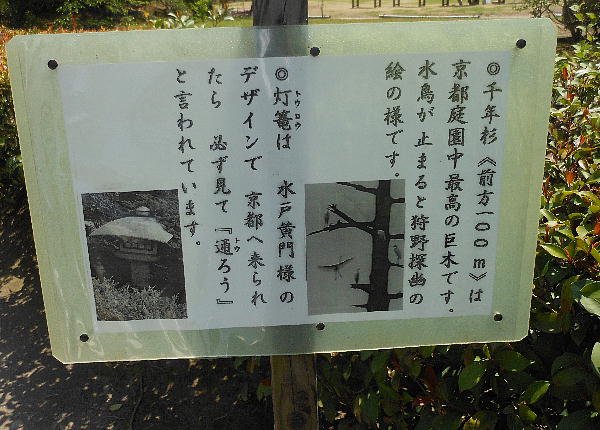 ◎千年杉《前方一〇〇m》は
京都庭園中最高の巨木です。
水鳥が止まると狩野探幽の
絵の様です。
◎灯篭は 水戸黄門様の
トウロウ
デザインで 京都へ来られ
たら 必ず見て『通ろう』
トウ
と言われています。